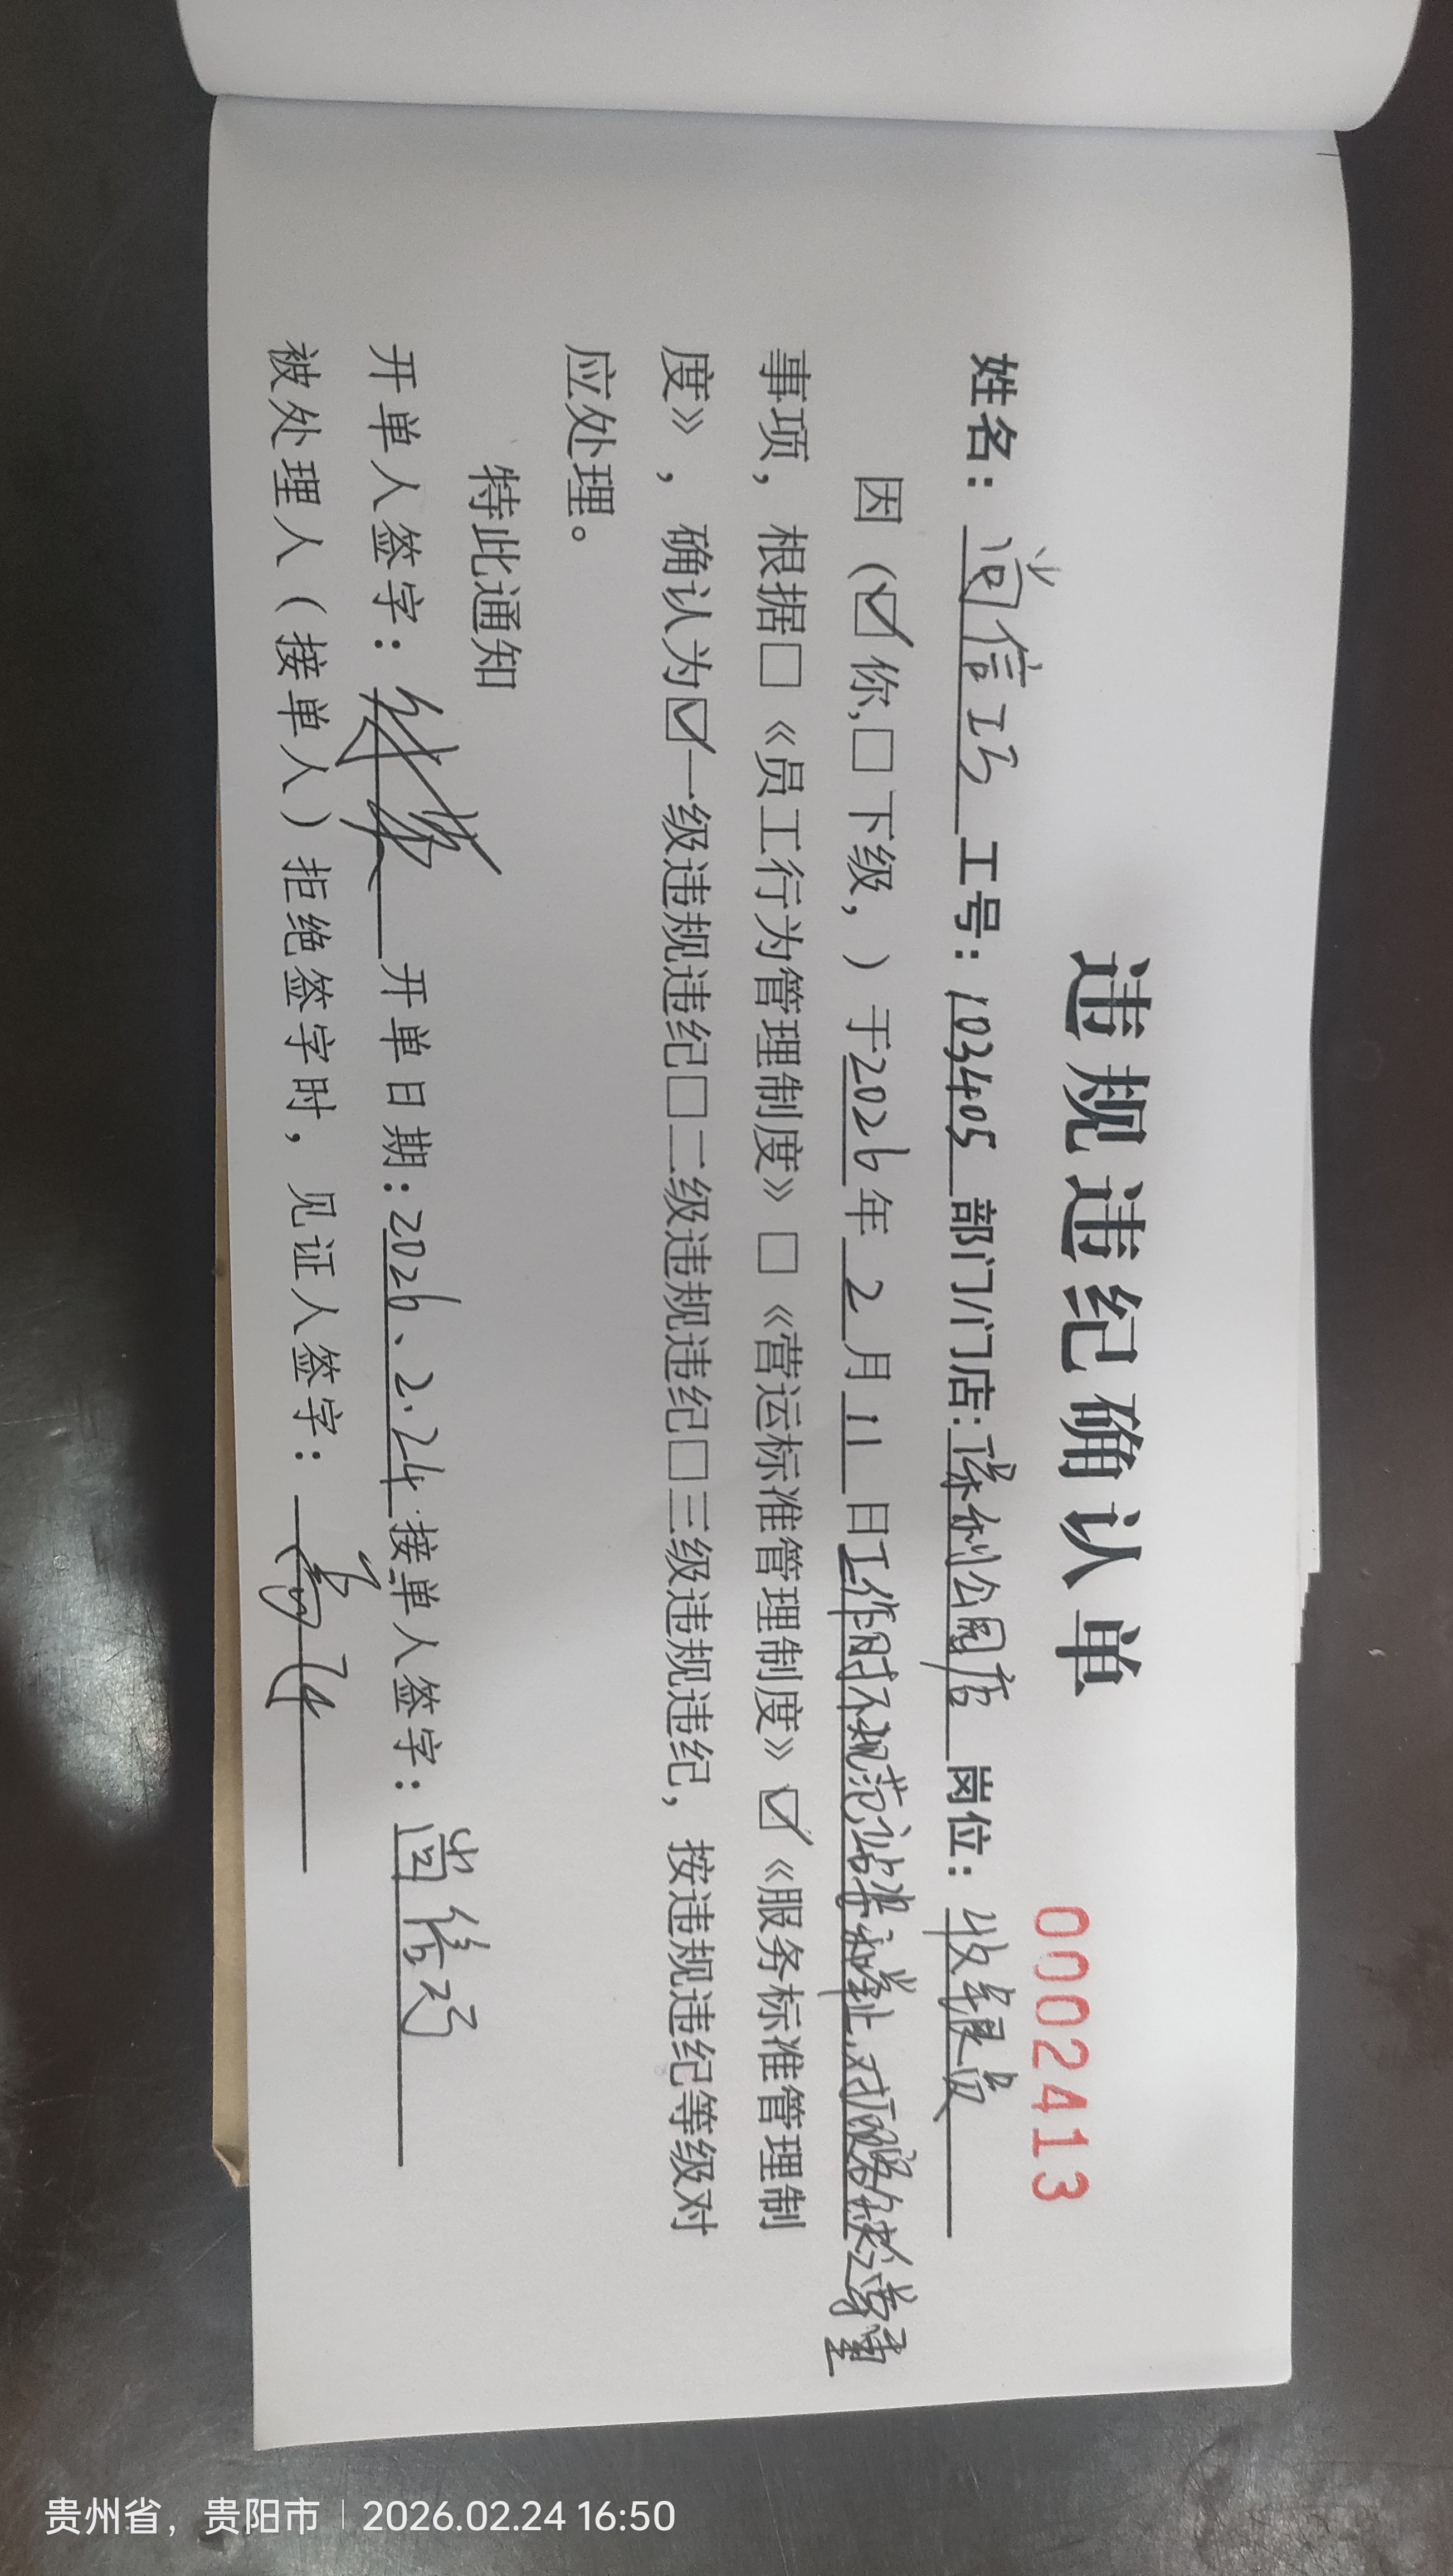 违规违纪确认单
0002413
姓名：尚信巧 工号：103405 部门/门店：公园店 岗位：收银员
因（☑你,□下级，）于2026年2月11日工作时不规范站姿和举止,对顾客缺乏尊重
事项，根据□《员工行为管理制度》□《营运标准管理制度》☑《服务标准管理制
度》，确认为☑一级违规违纪□二级违规违纪□三级违规违纪，按违规违纪等级对
应处理。
特此通知
开单人签字： 开单日期：2026、2.24 接单人签字：尚信巧
被处理人（接单人）拒绝签字时，见证人签字：
贵州省，贵阳市 | 2026.02.24 16:50